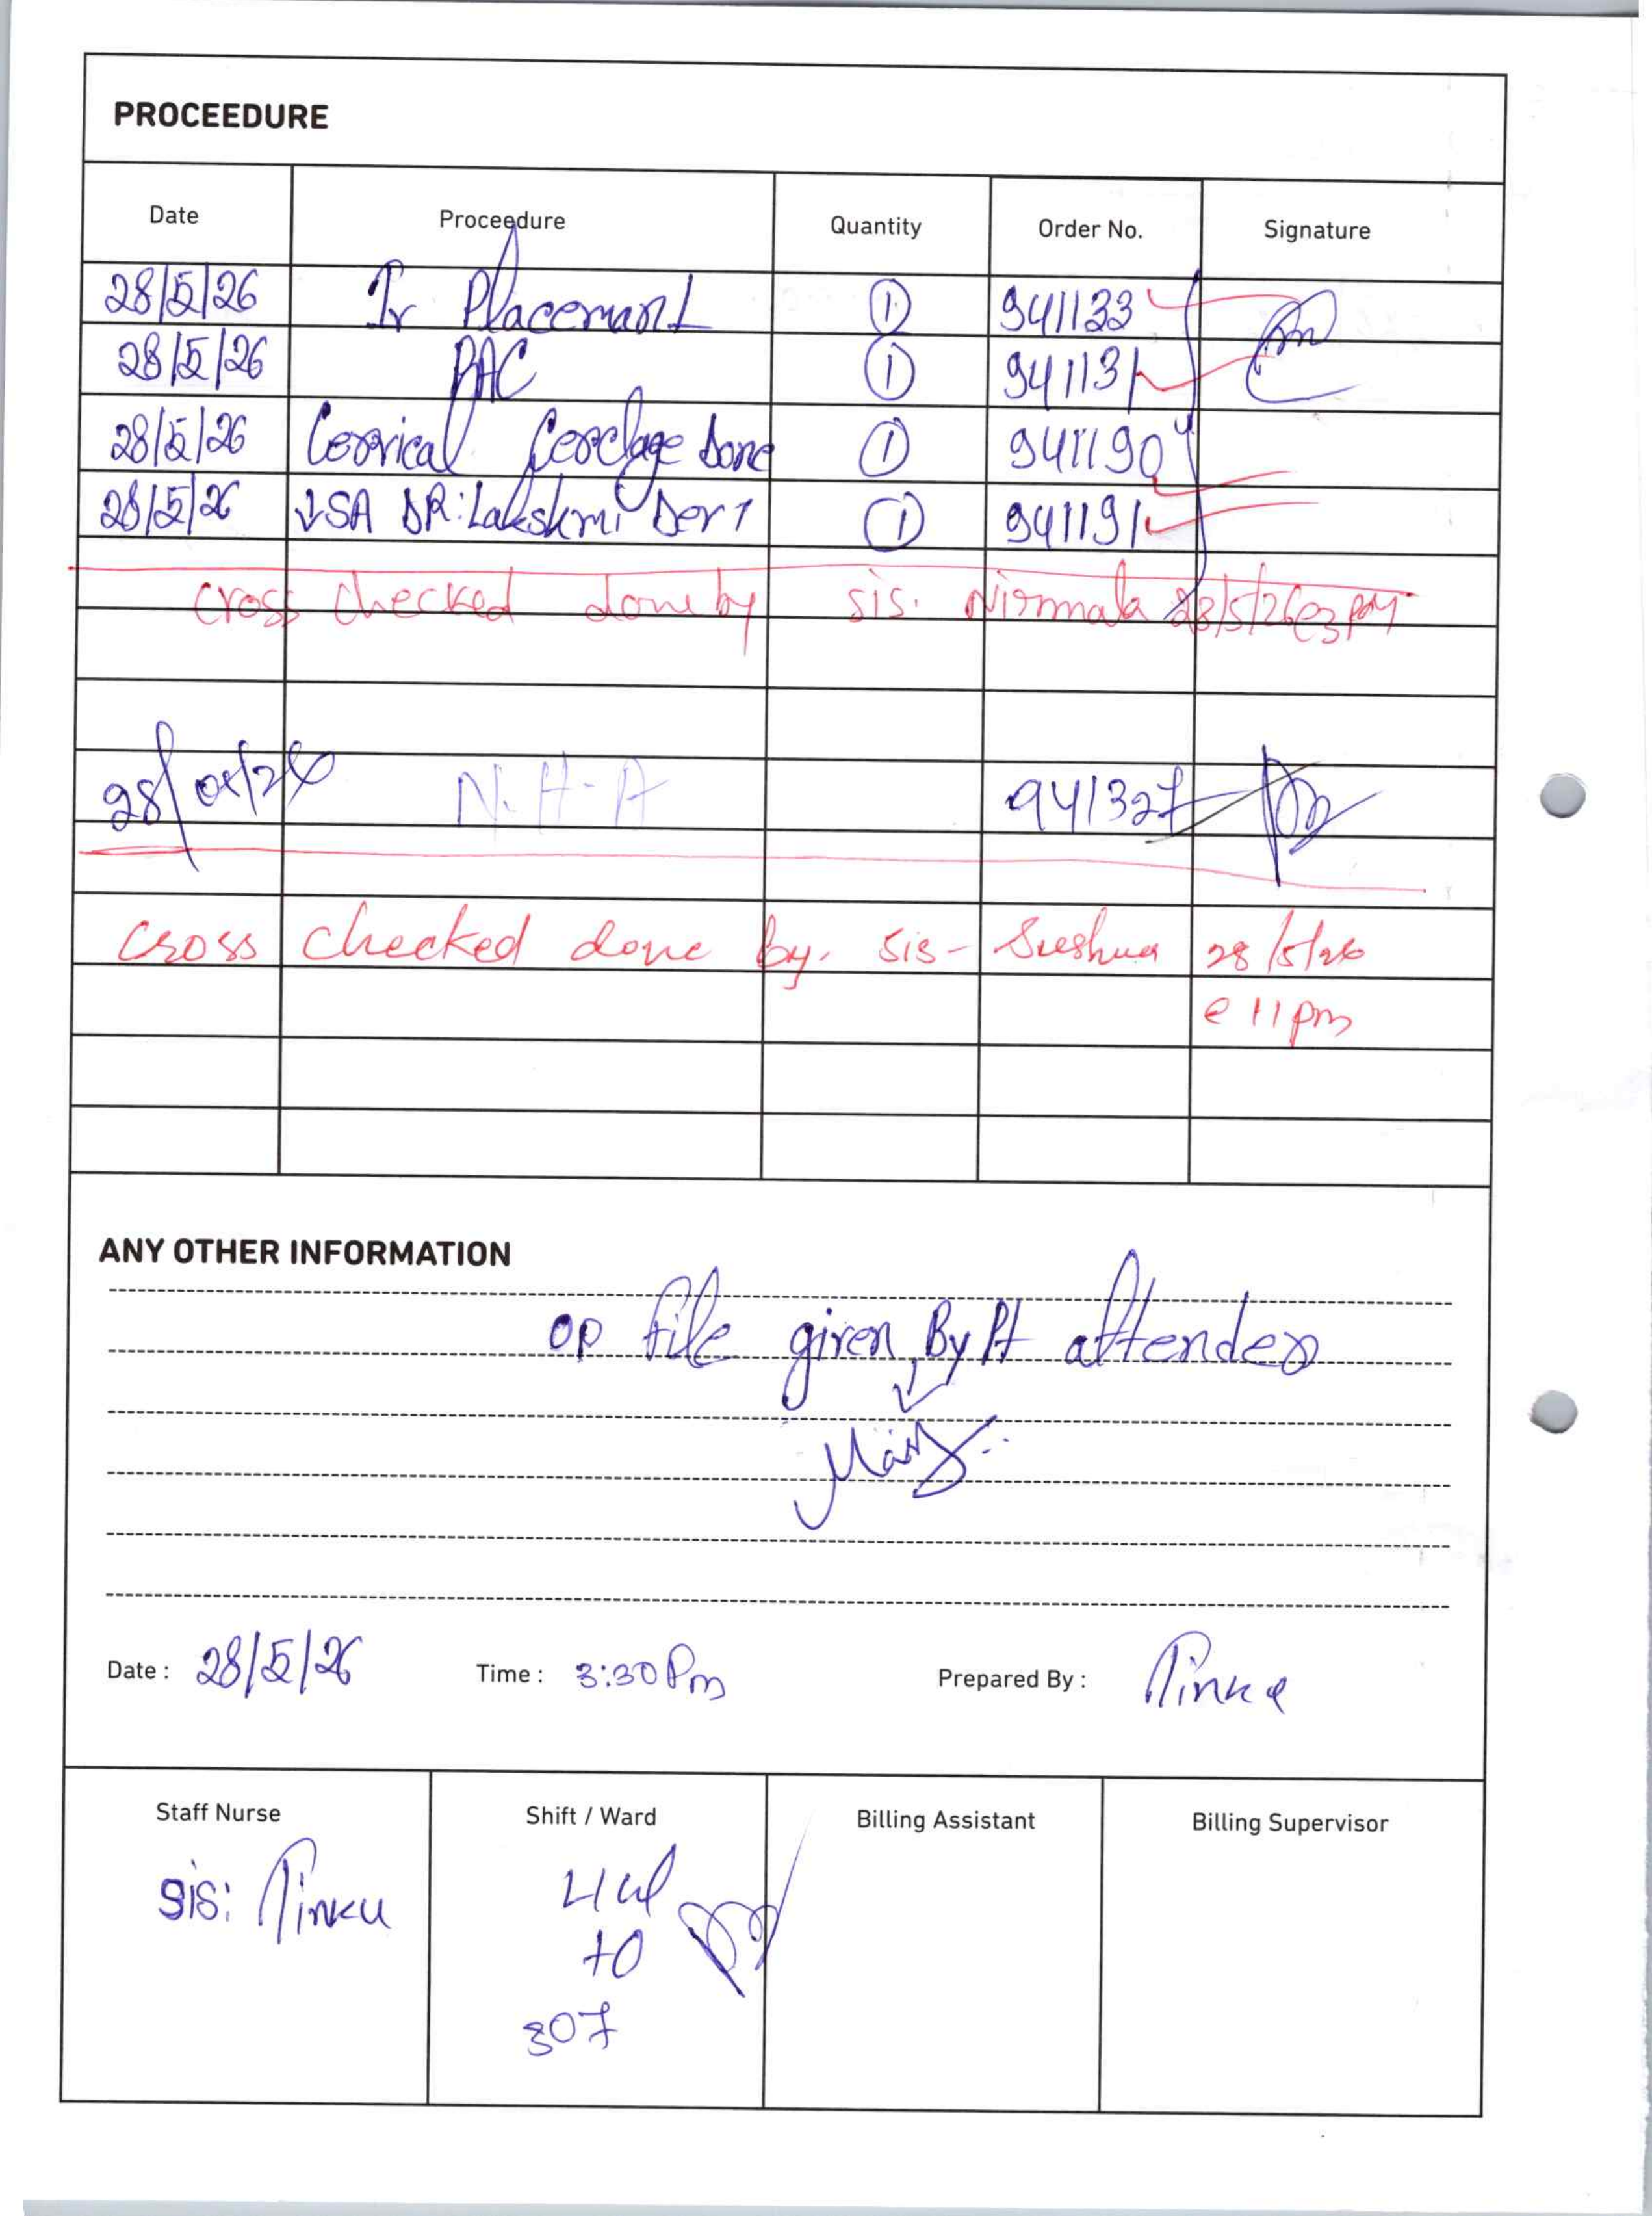 PROCEEDURE
Date Proceedure Quantity Order No. Signature
28/5/26 Iv Placemant 1 941133
28/5/26 PAC 1 941131
28/5/26 Cervical Cerclage done 1 941190
28/5/26 ↓SA DR: Lakshmi Devi 1 941191
Cross checked done by sis. Nirmala 28/5/26 @ 3 pm
28/05/26 N.H-A 941327
Cross checked done by. sis- 28/5/26
@ 11 pm
ANY OTHER INFORMATION
OP file given By Pt attender
Date : 28/5/26 Time : 3:30 Pm Prepared By : Pinku
Staff Nurse Shift / Ward Billing Assistant Billing Supervisor
Sis: Pinku
to
307